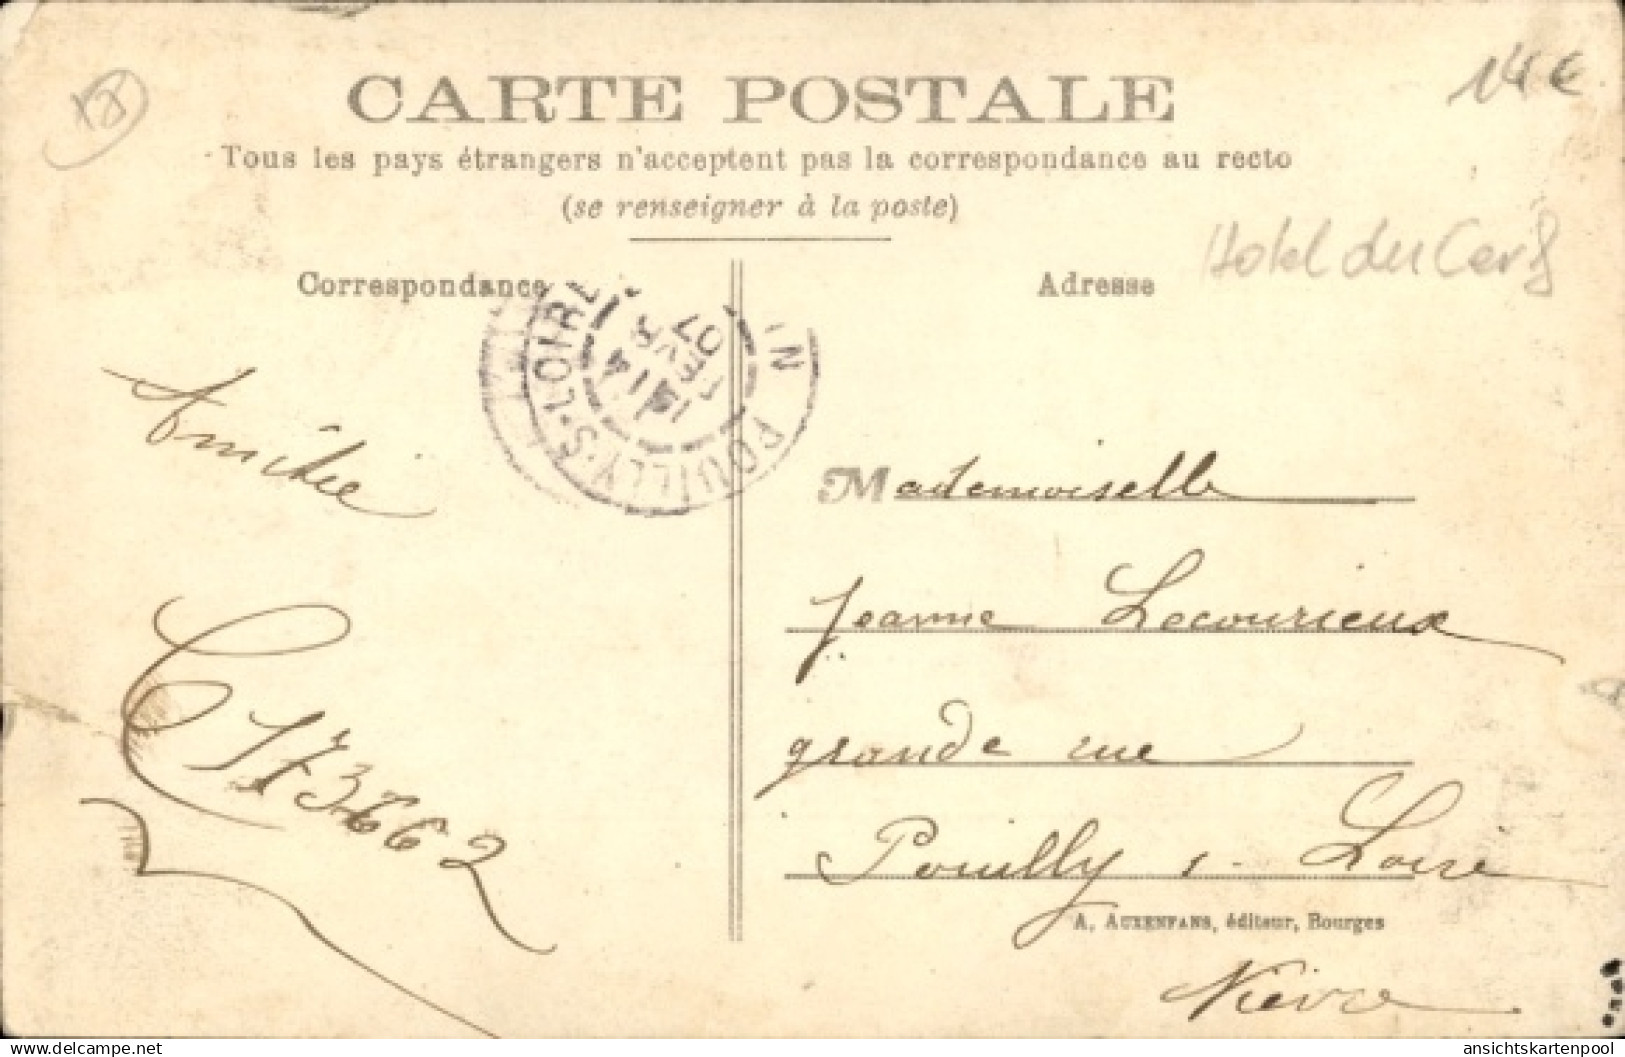 18
14 €
CARTE POSTALE
Tous les pays étrangers n'acceptent pas la correspondance au recto
(se renseigner à la poste)
Hotel du Cerf
Correspondance
Adresse
POUILLY-S-LOIRE
07
Amitié
Mademoiselle
Jeanne Lecourieux
grande rue
Pouilly s. Loire
A. AUXENFANS, éditeur, Bourges
Nièvre
ansichtskartenpool